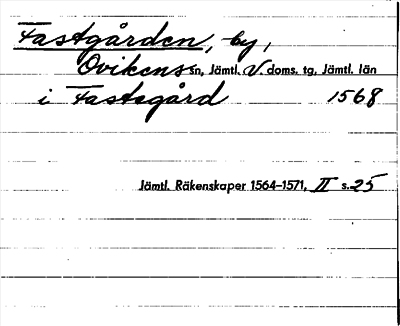 Fastgården, by,
Ovikens sn, Jämtl. V. doms. tg, Jämtl. län
i Fastegård 1568
Jämtl. Räkenskaper 1564–1571, II s. 25